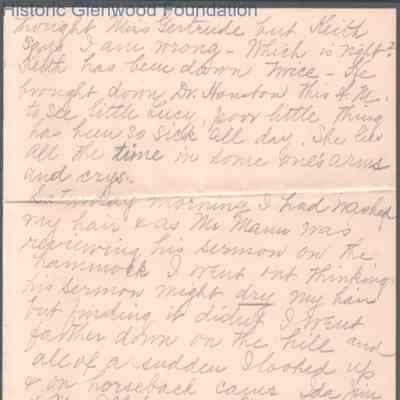 Historic Glenwood Foundation
thought Miss Gertrude but Keith
Says I am wrong - Which is right?
Keith has been down twice - He
brought down Dr. Houston this A.M.
to see little Lucy, poor little thing
has been so sick all day. She lies
all the time in some one's arms
and crys.
Saturday morning I had washed
my hair & as Mr Mann was
reviewing his sermon on the
hammock I went out thinking
his sermon might dry my hair
but finding it didn't I went
farther down on the hill and
all of a sudden I looked up
& on horseback came Ida Jim